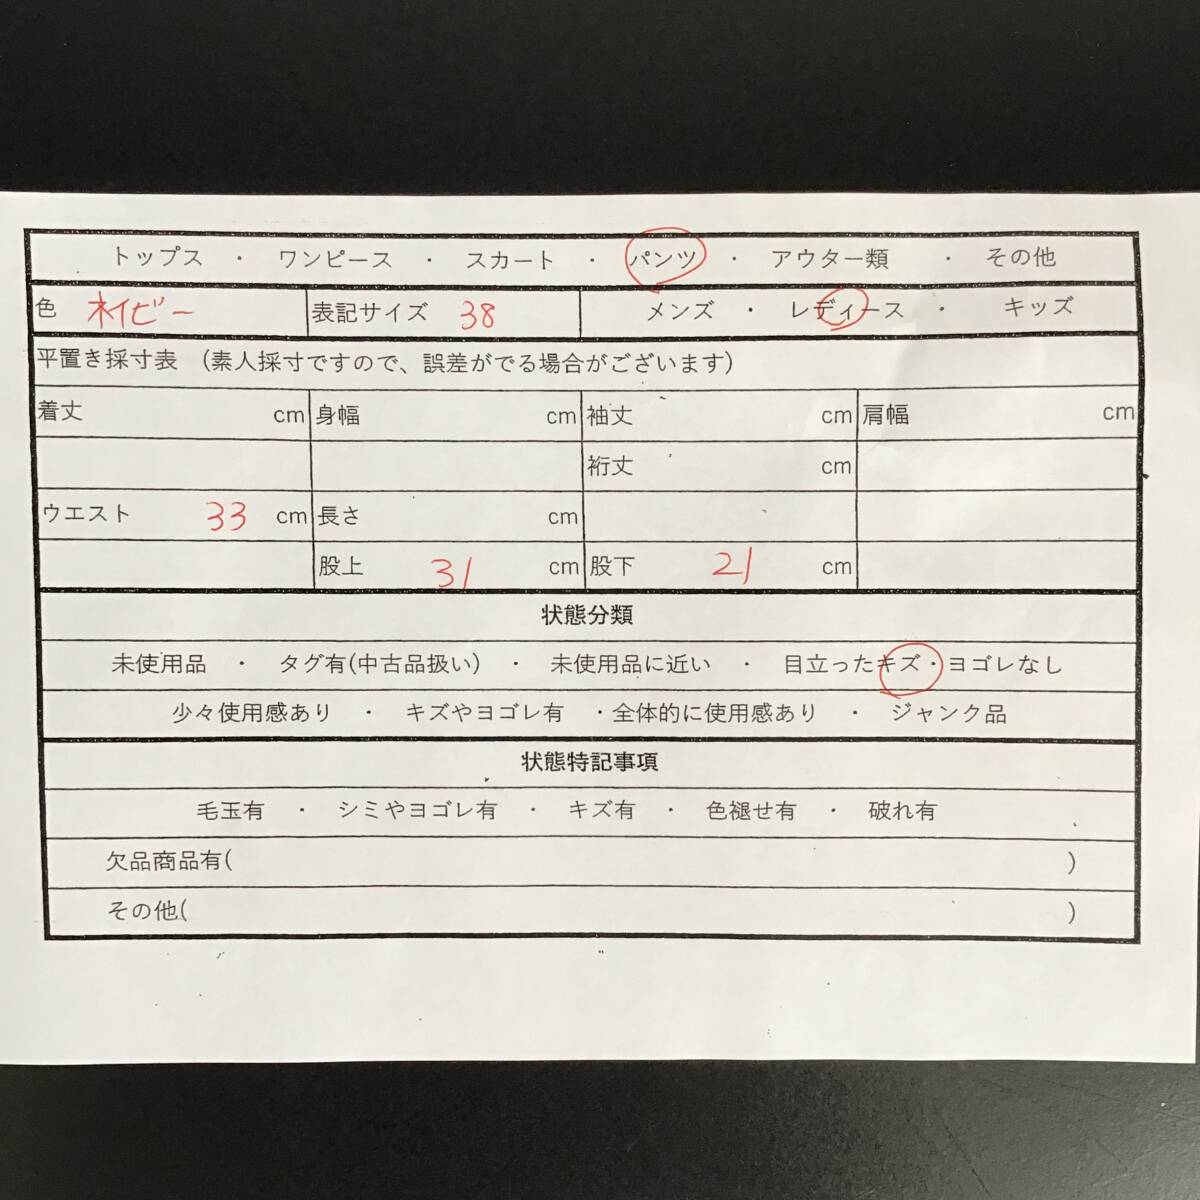 トップス ・ ワンピース ・ スカート ・ パンツ ・ アウター類 ・ その他
色 ネイビー 表記サイズ 38 メンズ ・ レディース ・ キッズ
平置き採寸表 (素人採寸ですので、誤差がでる場合がございます)
着丈 cm 身幅 cm 袖丈 cm 肩幅 cm
裄丈 cm
ウエスト 33 cm 長さ cm
股上 31 cm 股下 21 cm
状態分類
未使用品 ・ タグ有(中古品扱い) ・ 未使用品に近い ・ 目立ったキズ・ヨゴレなし
少々使用感あり ・ キズやヨゴレ有 ・全体的に使用感あり ・ ジャンク品
状態特記事項
毛玉有 ・ シミやヨゴレ有 ・ キズ有 ・ 色褪せ有 ・ 破れ有
欠品商品有( )
その他( )